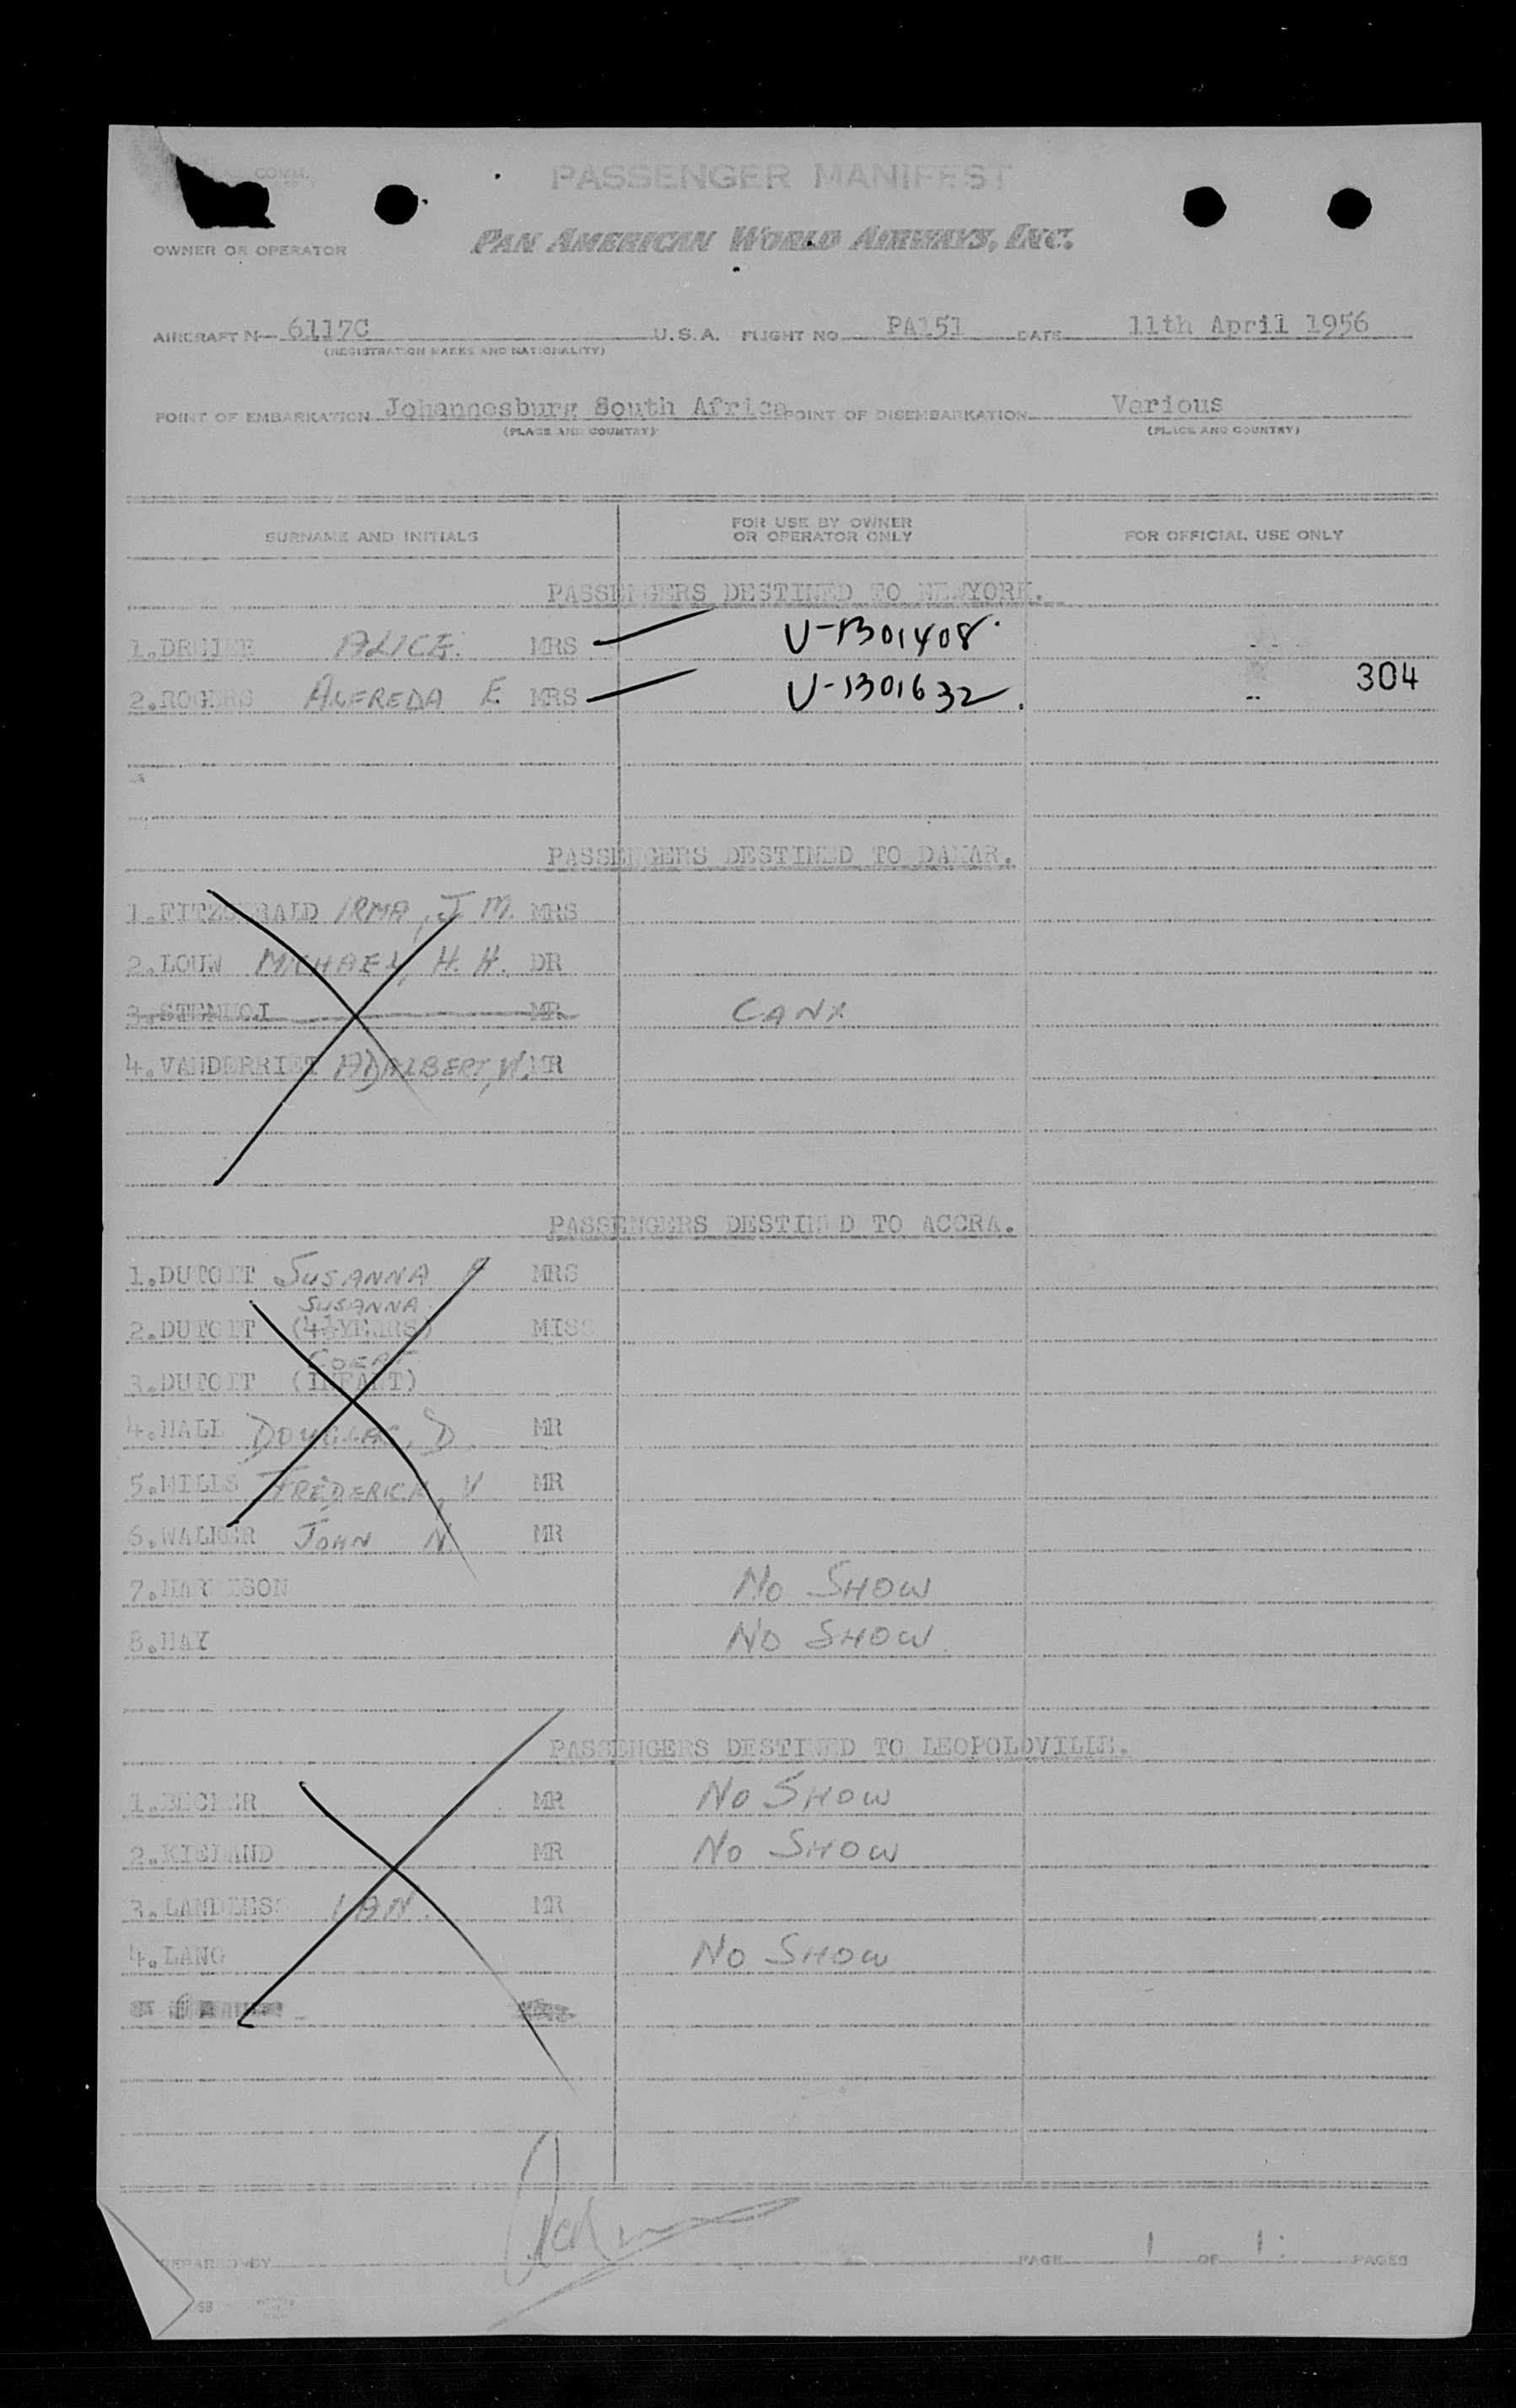 COMM.
PASSENGER MANIFEST
OWNER OR OPERATOR PAN AMERICAN WORLD AIRWAYS, INC.
AIRCRAFT N— 6117C U.S.A. FLIGHT NO PA151 DATE 11th April 1956
(REGISTRATION MARKS AND NATIONALITY)
POINT OF EMBARKATION Johannesburg South Africa POINT OF DISEMBARKATION Various
(PLACE AND COUNTRY) (PLACE AND COUNTRY)
SURNAME AND INITIALS FOR USE BY OWNER OR OPERATOR ONLY FOR OFFICIAL USE ONLY
PASSENGERS DESTINED TO NEWYORK.
1. ALICE. MRS V-1301408
2.ROGERS ALFREDA E MRS V-1301632 304
PASSENGERS DESTINED TO DAKAR.
1.FITZGERALD IRMA, J M. MRS
2.LOUW MICHAEL, H. H. DR
3. MR CANX
4.VANDERRIET ADALBERT, W. MR
PASSENGERS DESTINED TO ACCRA.
1.DUTOIT SUSANNA MRS
SUSANNA
2.DUTOIT (4½YEARS) MISS
COERT
3.DUTOIT (INFANT)
4.HALL DOUGLAS, D. MR
5.MILLS FREDERICK, V MR
6.WALKER JOHN N. MR
7.HARRISON NO SHOW
8.HAY NO SHOW.
PASSENGERS DESTINED TO LEOPOLDVILLE.
1.BECKER MR NO SHOW
2.KIELAND MR NO SHOW
3.LANDERS IAN. MR
4.LANG NO SHOW
PREPARED BY PAGE 1 OF 1 PAGES